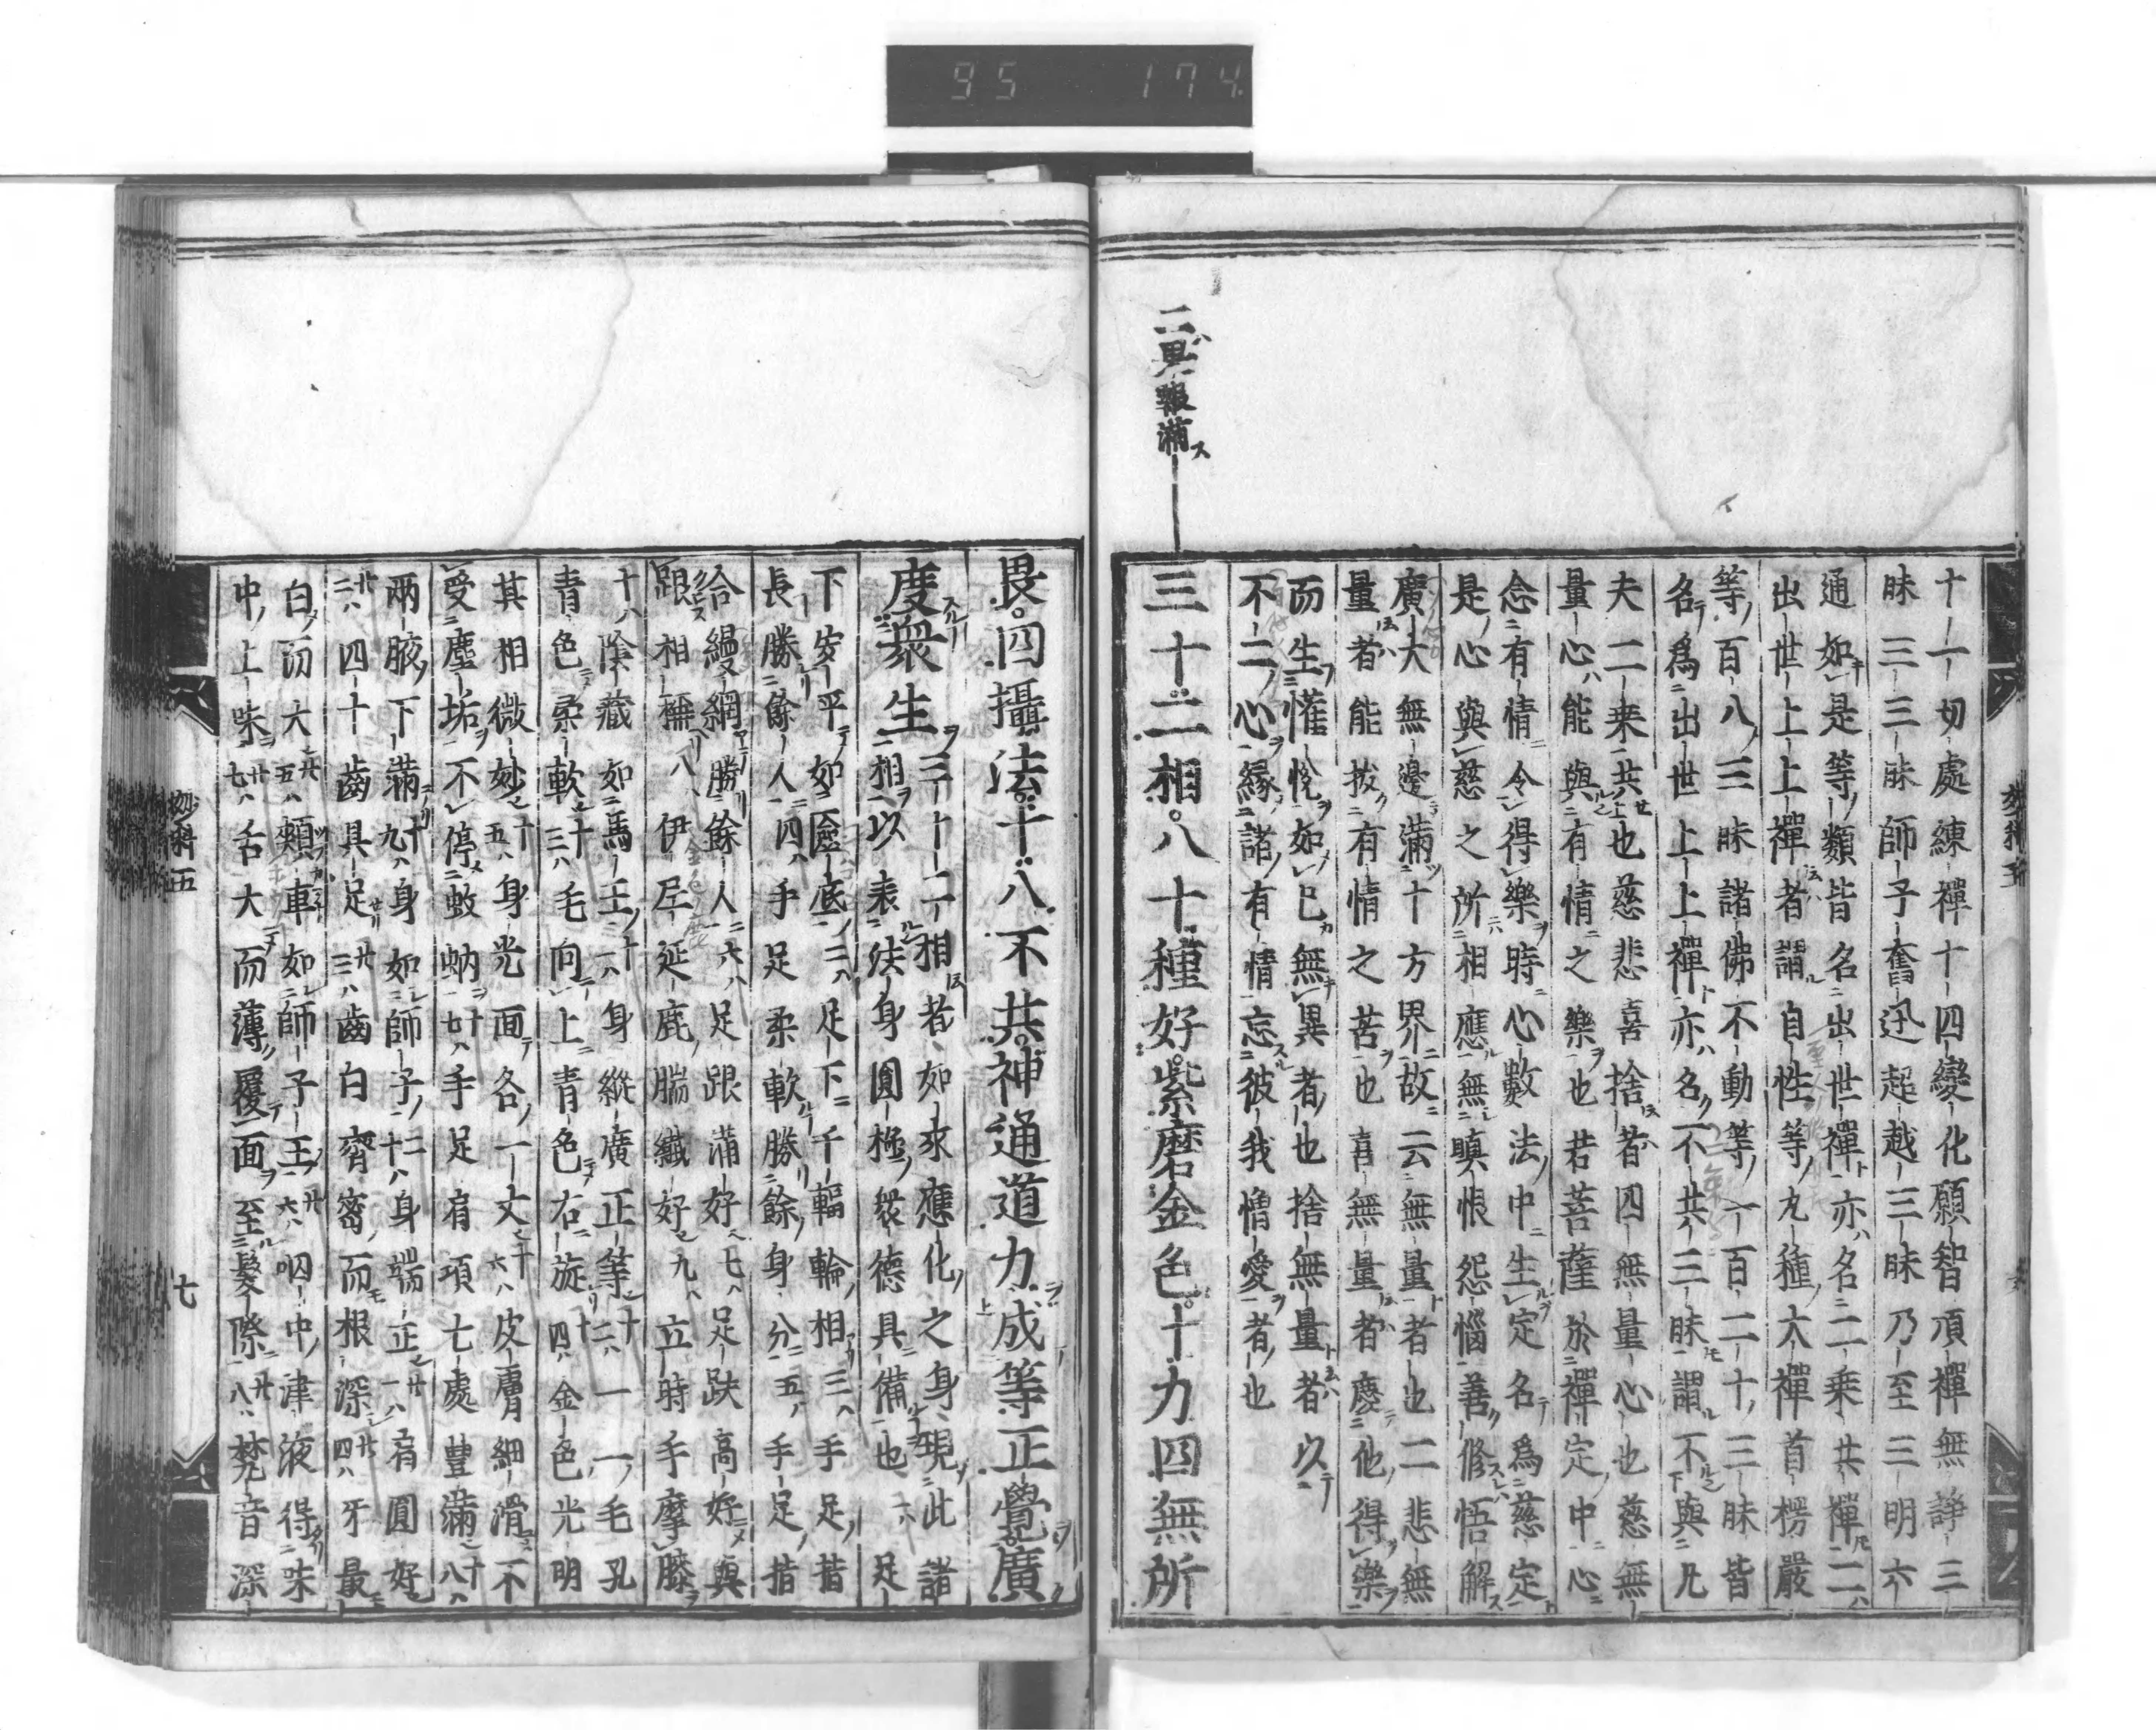 95 174
二異報滿
十一切處練禪十四變化願智頂禪無諍三
昧三三昧師子奮迅超越三昧乃至三明六
通如是等類皆名出世禪亦名二乘共禪二
出世上上禪者謂自性等九種大禪首楞嚴
等百八三昧諸佛不動等一百二十三昧皆
名爲出世上上禪亦名不共三昧謂不與凡
夫二乘共也慈悲喜捨者四無量心也慈無
量心能與有情之樂也若菩薩於禪定中心
念有情令得樂時心數法中生定名爲慈定
是心與慈之所相應無瞋恨怨惱善修悟解
廣大無邊滿十方界故云無量者也二悲無
量者能拔有情之苦也喜無量者慶他得樂
而生懽悅如己無異者也捨無量者以
不二心緣諸有情忘彼我憎愛者也
三十二相八十種好紫磨金色十力四無所
畏四攝法十八不共神通道力成等正覺廣
度衆生三十二相者如來應化之身現此諸
相以表法身圓極衆德具備也一足
下安平如奩底二足下千輻輪相三手足指
長勝餘人四手足柔軟勝餘身分五手足指
給縵網勝餘人六足跟滿好七足趺高好與
跟相稱八伊尼延鹿腨纖好九立時手摩膝
十陰藏如馬王十一身縱廣正等十二一一毛孔
青色柔軟十三毛向上青色右旋十四金色光明
其相微妙十五身光面各一丈十六皮膚細滑不
受塵垢不停蚊蚋十七手足肩項七處豐滿十八
兩腋下滿十九身如師子二十身端正廿一肩圓好
廿二四十齒具足廿三齒白齊密而根深廿四牙最
白而大廿五頰車如師子王廿六咽中津液得味
中上味廿七舌大而薄覆面至髮際廿八梵音深
妙科五
七